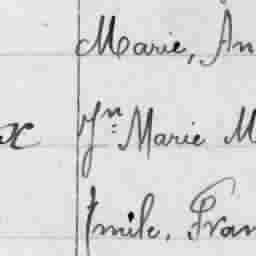 Marie, An
x Jn: Marie M
Emile, Fran